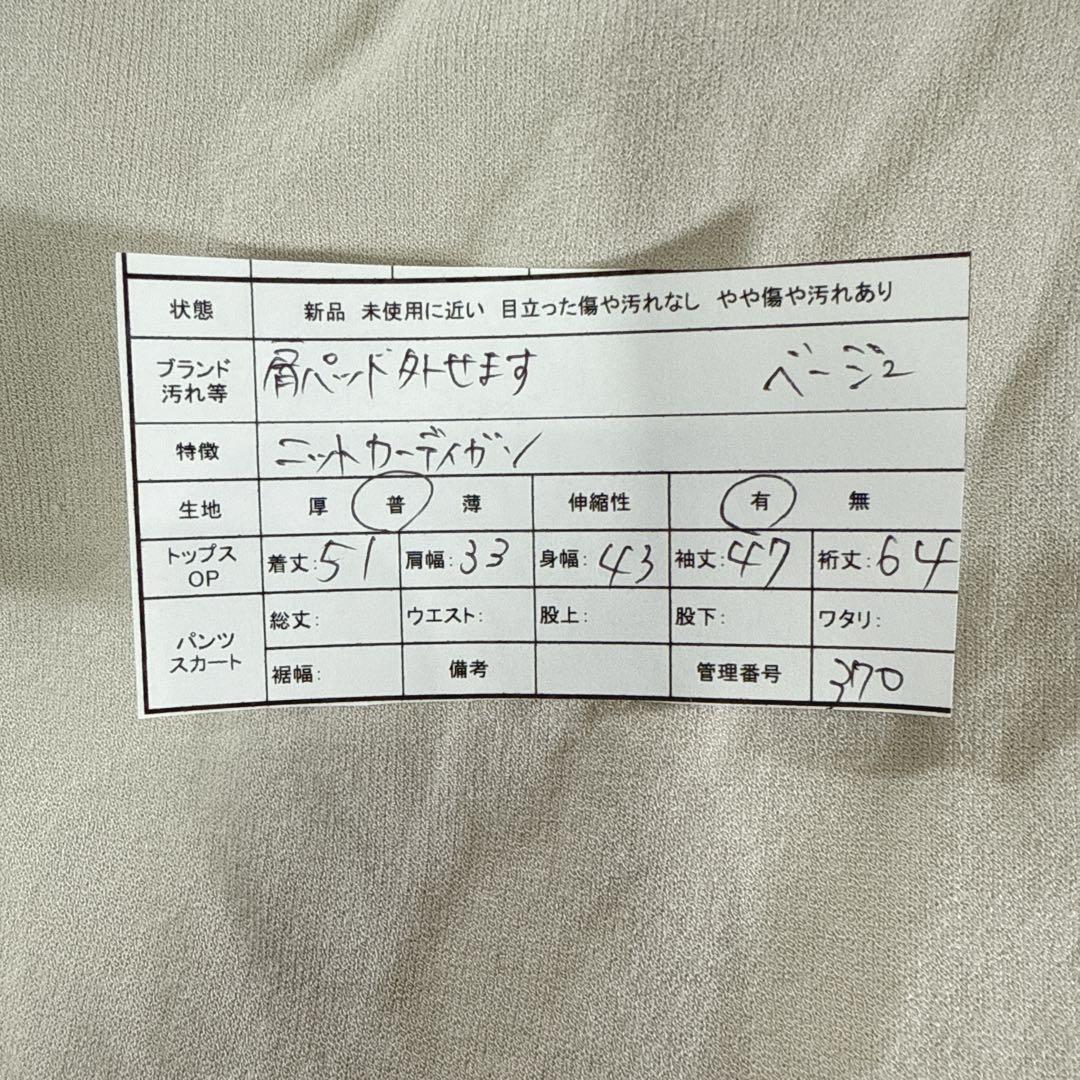 状態 新品 未使用に近い 目立った傷や汚れなし やや傷や汚れあり
ブランド 汚れ等 肩パッド外せます ベージュ
特徴 ニットカーディガン
生地 厚 普 薄 伸縮性 有 無
トップス OP 着丈:51 肩幅:33 身幅:43 袖丈:47 裄丈:64
パンツ スカート 総丈: ウエスト: 股上: 股下: ワタリ:
裾幅: 備考 管理番号 370